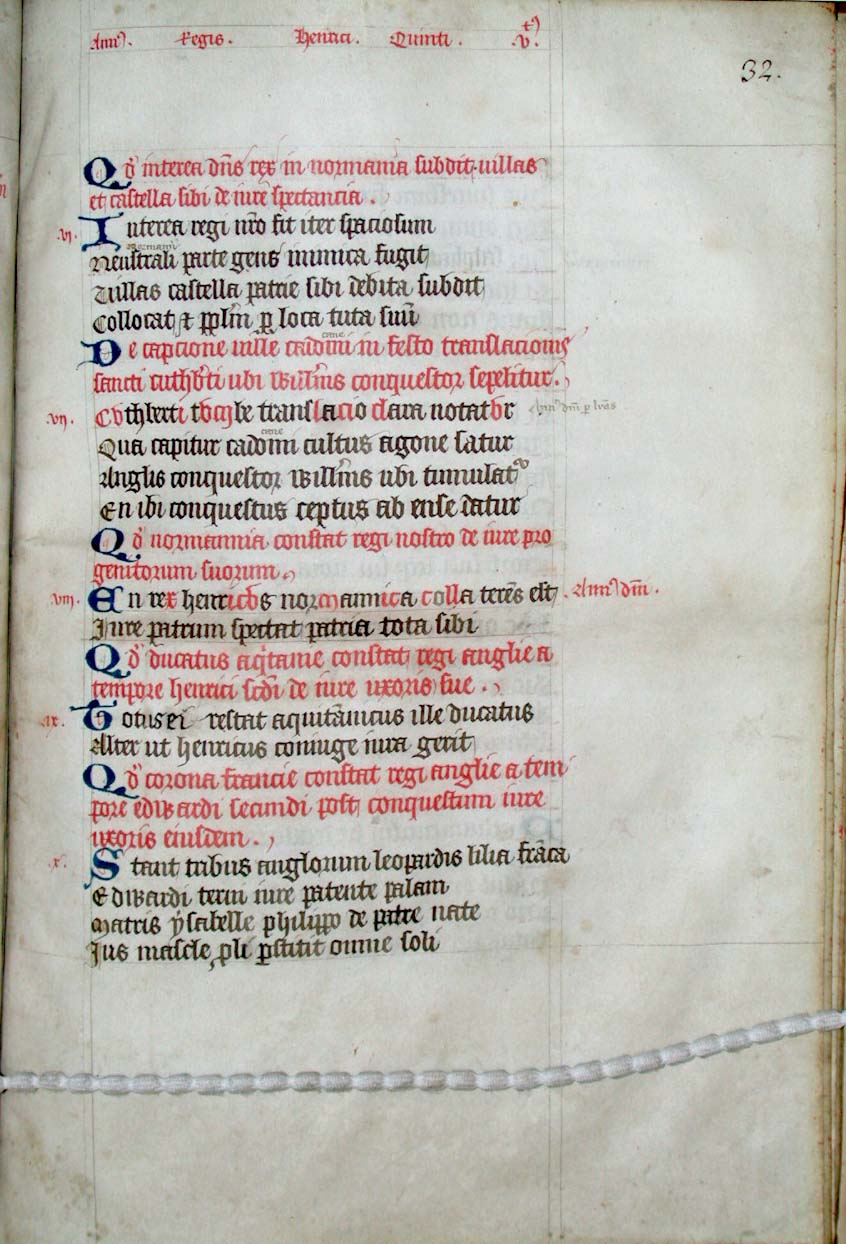 Ann⁹. Regis. Henrici. Quinti. .v.t⁹
32.
Qd̛ interea dn̄s rex in normania subdit villas
et castella sibi de iure spectancia.
.vj. Interea regi nr̄o fit iter spaciosum
normanīa
Neustrali parte gens inimica fugit
Villas castella patrie sibi debita subdit
Collocat et pplm̄ p loca tuta suū
De capcione ville cadomi in festo translacionis
cane
sancti cuthb̄ti ubi Willm̄s conquestor sepelitur.
.vij. CVthberti tVmVle translacio clara notatVr
Ann⁹ dn̄i p lr̄as
Qua capitur cadomi cultus agone satur
cane
Anglis conquestor Willm̄s ubi tumulatᵘʳ
En ibi conquestus ceptus ab ense datur
Qd̛ normannia constat regi nostro de iure pro
genitorum suorum.
.viij. En rex henricVs norMannica colla terēs est. Ann⁹ dn̄i.
Iure patrum spectat patria tota sibi
Qd̛ ducatus aq̄tanie constat regi anglie a
tempore henrici scd̄i de iure uxoris sue.
.ix. Totus ei restat aquitānicus ille ducatus
Alter ut henricus coniuge iura gerit
Qd̛ corona francie constat regi anglie a tem
pore edwardi secundi post conquestum iure
uxoris eiusdem.
.x. Stant tribus anglorum leopardis lilia frāca
Edwardi terni iure patente palam
Matris ẏsabelle philippo de patre nate
Ius mascle pli pstitit omne soli